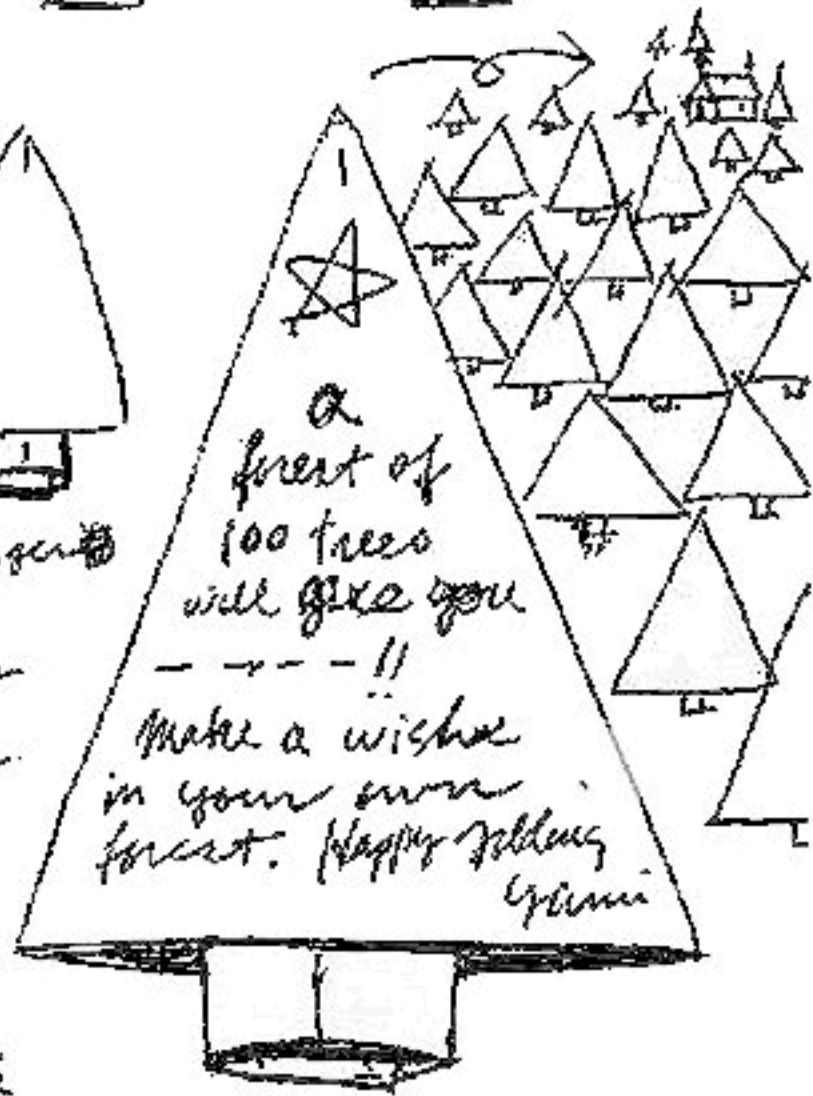 a
forest of
100 trees
will give you
- - - - - !!
Make a wish
in your own
forest. Happy Folding
Yami